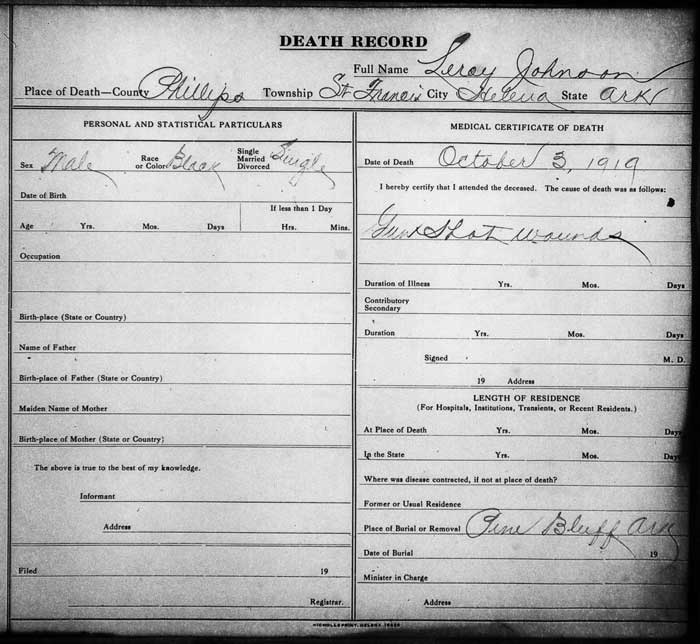 DEATH RECORD
Full Name Leroy Johnson
Place of Death—County Phillips Township St Francis City Helena State Ark
PERSONAL AND STATISTICAL PARTICULARS
Sex Male Race or Color Black Single Married Divorced Single
Date of Birth
If less than 1 Day
Age Yrs. Mos. Days Hrs. Mins.
Occupation
Birth-place (State or Country)
Name of Father
Birth-place of Father (State or Country)
Maiden Name of Mother
Birth-place of Mother (State or Country)
The above is true to the best of my knowledge.
Informant
Address
Filed 19
Registrar.
MEDICAL CERTIFICATE OF DEATH
Date of Death October 3, 1919
I hereby certify that I attended the deceased. The cause of death was as follows:
Gun Shot wounds
Duration of Illness Yrs. Mos. Days
Contributory
Secondary
Duration Yrs. Mos. Days
Signed M. D.
19 Address
LENGTH OF RESIDENCE
(For Hospitals, Institutions, Transients, or Recent Residents.)
At Place of Death Yrs. Mos. Days
In the State Yrs. Mos. Days
Where was disease contracted, if not at place of death?
Former or Usual Residence
Place of Burial or Removal Pine Bluff Ark
Date of Burial 19
Minister in Charge
Address